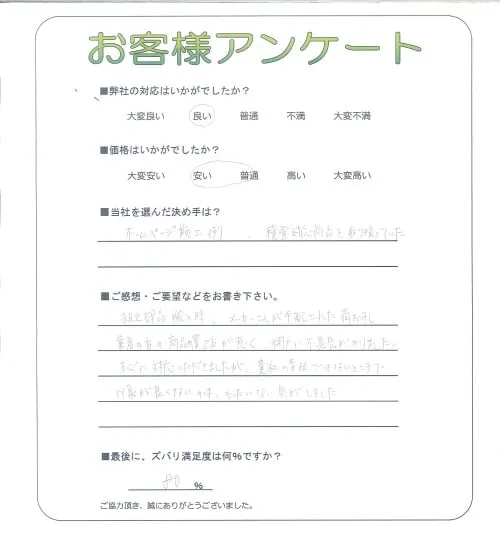 お客様アンケート
■弊社の対応はいかがでしたか？
大変良い 良い 普通 不満 大変不満
■価格はいかがでしたか？
大変安い 安い 普通 高い 大変高い
■当社を選んだ決め手は？
ホームページ施工例、積雪対応商品を取り扱っていた
■ご感想・ご要望などをお書き下さい。
組立部品搬入時、メーカーさんが手配された荷おろし
業者の方の商品置き方が悪く、網戸に不具合が有りました。
すぐに対応いただきましたが、貴社の責任ではないところで
印象が良くないのは、もったいない気がしました
■最後に、ズバリ満足度は何%ですか？
80 %
ご協力頂き、誠にありがとうございました。